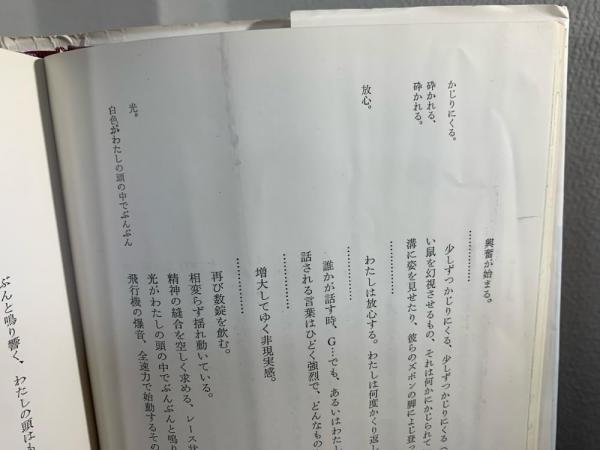 かじりにくる。
砕かれる、
砕かれる。
放心。
光。
白色がわたしの頭の中でぶんぶん
興奮が始まる。
…………
少しずつかじりにくる、少しずつかじりにくる
い鼠を幻視させるもの、それは何かにかじられて
溝に姿を見せたり、彼らのズボンの脚によじ登っ
…………
わたしは放心する。わたしは何度かくり返し
…………
誰かが話す時、G…でも、あるいはわたし
話される言葉はひどく強烈で、どんなもの
…………
増大してゆく非現実感。
…………
再び数錠を飲む。
相変らず揺れ動いている。
精神の縫合を空しく求める、レース状
光がわたしの頭の中でぶんぶんと鳴り
飛行機の爆音、全速力で始動するその
ぶんと鳴り響く、わたしの頭はも